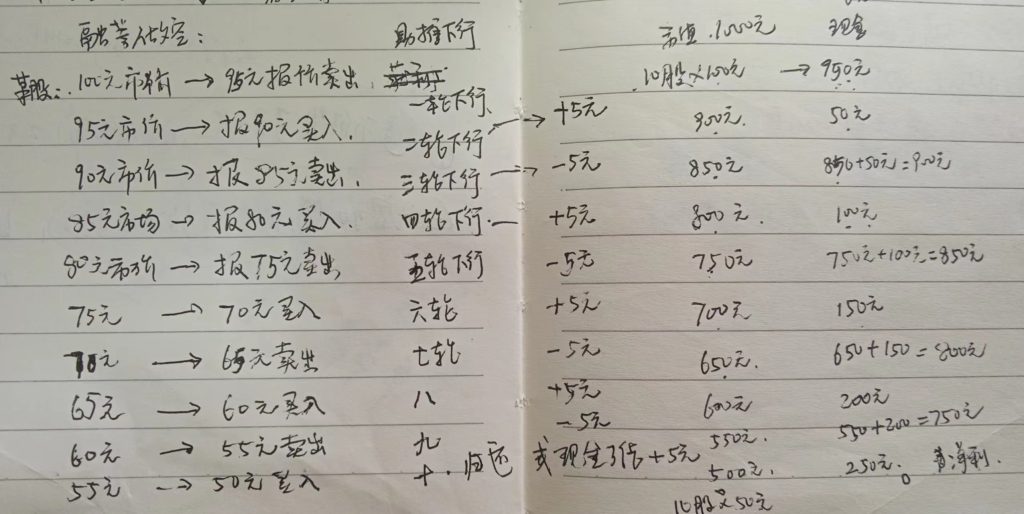 融券做空： 助推下行 市值.1000元 现金
某股：100元市价 → 95元报价卖出 一轮下行 10股×100元 → 950元
95元市价 → 报90元买入. 二轮下行 → +5元 900元. 50元
90元市价 → 报85元卖出. 三轮下行 → -5元 850元 850+50元=900元
85元市场 → 报80元买入. 四轮下行. +5元 800元. 100元
80元市价 → 报75元卖出 五轮下行 -5元 750元 750元+100元=850元
75元 → 70元买入 六轮 +5元 700元 150元
70元 → 65元卖出 七轮 -5元 650元. 650+150=800元
65元 → 60元买入 八 +5元 600元 200元
60元 → 55元卖出 九 -5元 550元. 550+200=750元
55元 → 50元买入 十.归还 或现生了债+5元 500元. 250元. 净利.
10股×50元